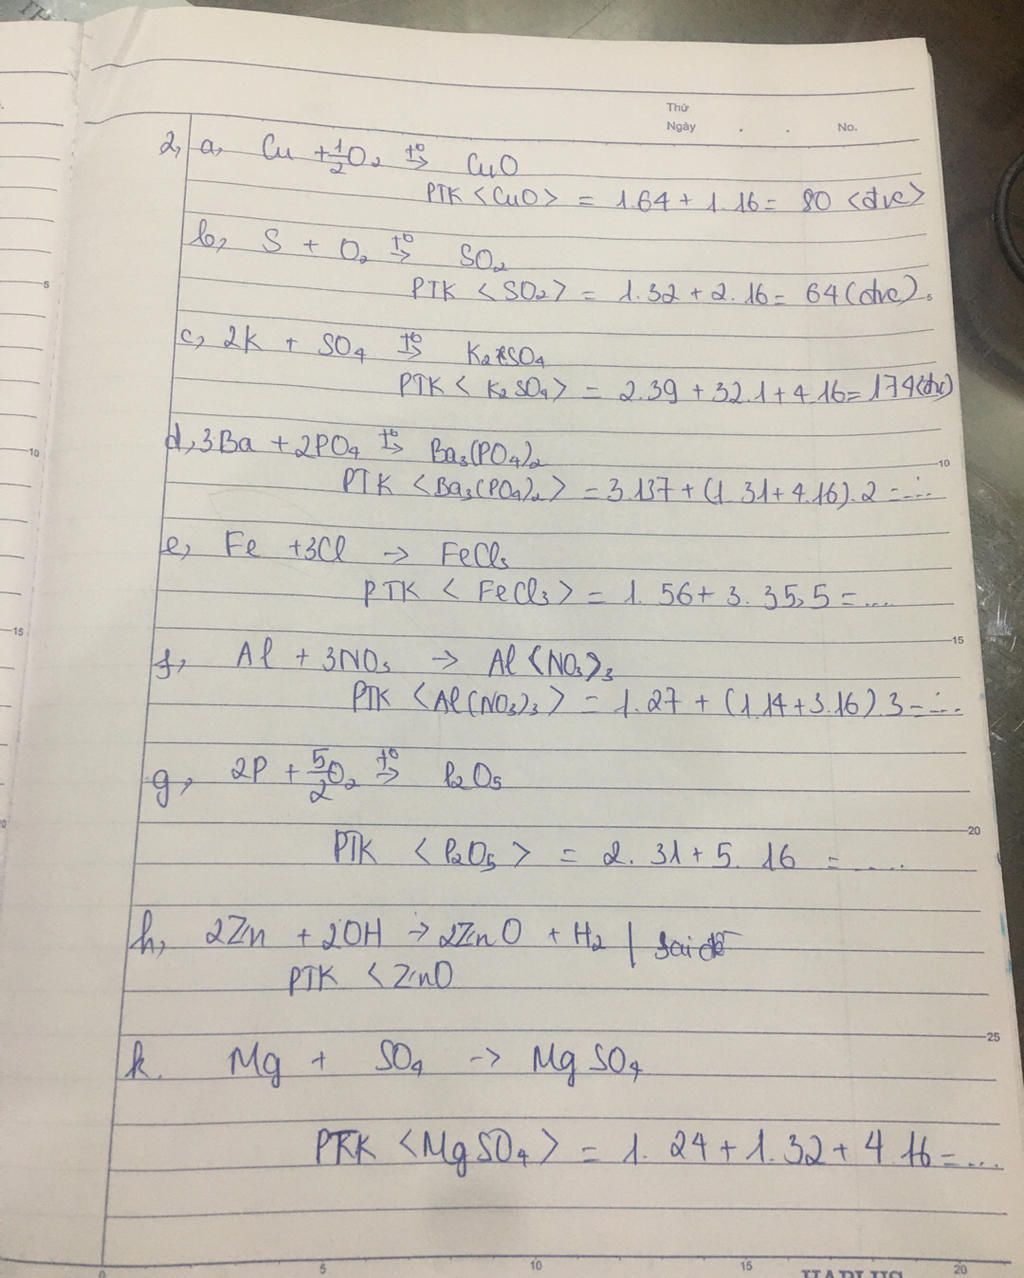 Thứ
Ngày . . No.
2, a, Cu + 1/2 O₂ t°→ CuO
PTK <CuO> = 1.64 + 1.16 = 80 <đvc>
b, S + O₂ t°→ SO₂
PTK <SO₂> = 1.32 + 2.16 = 64 (đvc).
c, 2K + SO₄ t°→ K₂SO₄
PTK < K₂SO₄> = 2.39 + 32.1 + 4.16 = 174 (đvc)
d, 3Ba + 2PO₄ t°→ Ba₃(PO₄)₂
PTK <Ba₃(PO₄)₂> = 3.137 + (1.31 + 4.16).2 = ...
e, Fe + 3Cl → FeCl₃
PTK < FeCl₃> = 1.56 + 3.35,5 = ....
f, Al + 3NO₃ → Al<NO₃>₃
PTK <Al(NO₃)₃> = 1.27 + (1.14 + 3.16).3 = ...
g, 2P + 5/2 O₂ t°→ P₂O₅
PTK <P₂O₅> = 2.31 + 5.16 = ....
h, 2Zn + 2OH → 2ZnO + H₂ | Sai đề
PTK <ZnO
k. Mg + SO₄ → MgSO₄
PTK <MgSO₄> = 1.24 + 1.32 + 4.16 = ...
5
10
15
20
25
0 5 10 15 20